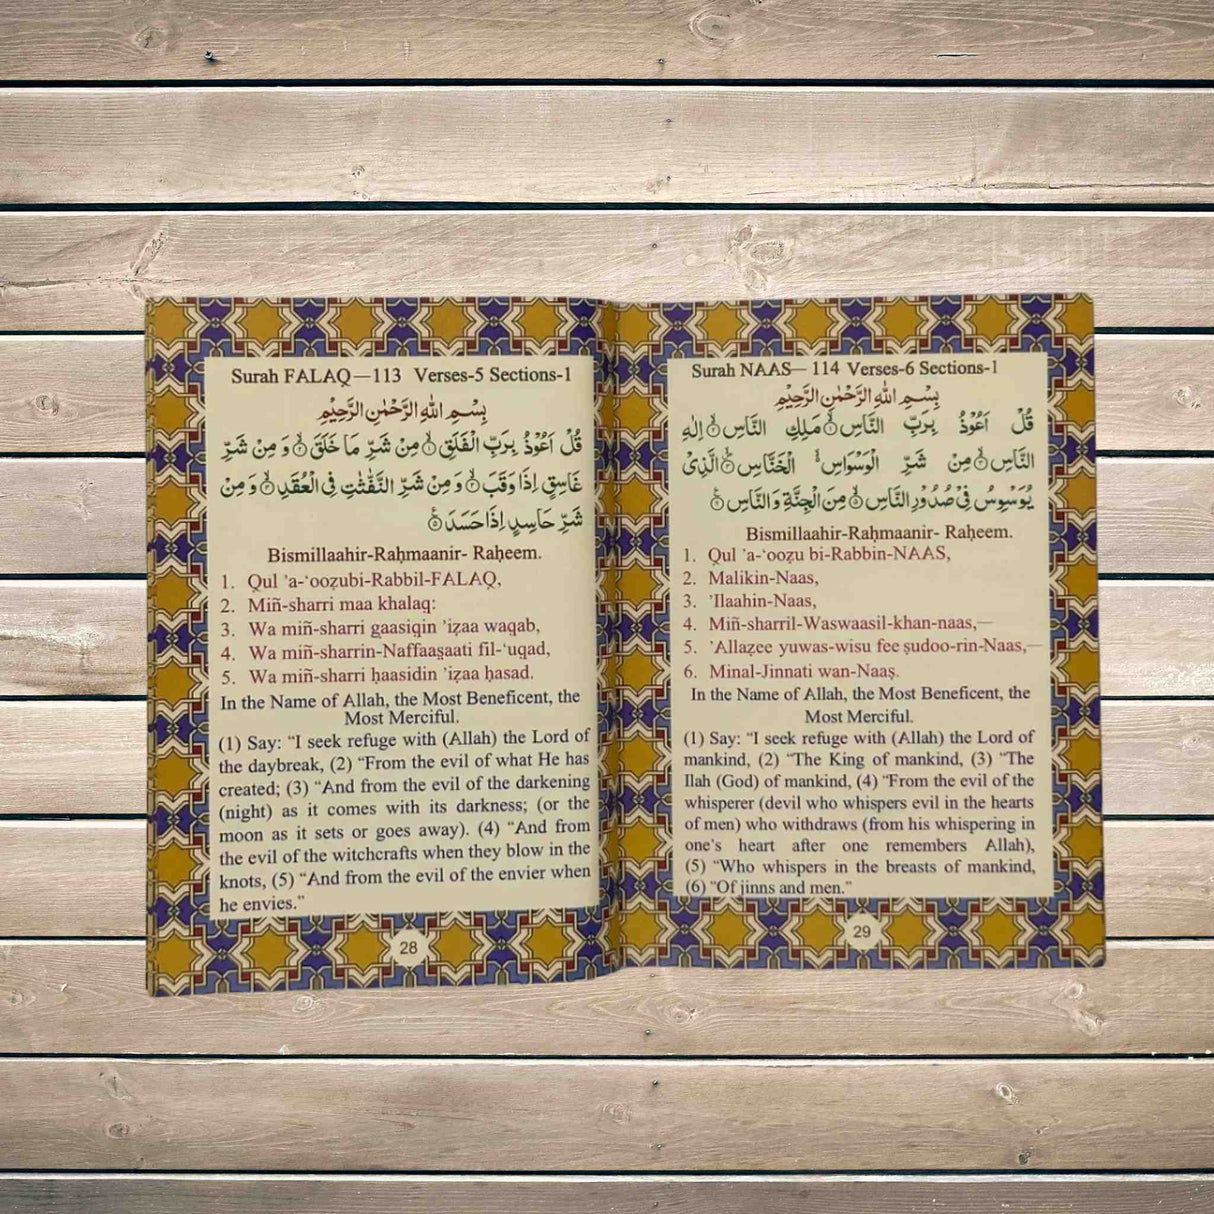 Surah FALAQ—113 Verses-5 Sections-1
بِسْمِ اللّٰهِ الرَّحْمٰنِ الرَّحِيْمِ
قُلْ اَعُوْذُ بِرَبِّ الْفَلَقِ ۝١ مِنْ شَرِّ مَا خَلَقَ ۝٢ وَ مِنْ شَرِّ
غَاسِقٍ اِذَا وَقَبَ ۝٣ وَ مِنْ شَرِّ النَّفّٰثٰتِ فِى الْعُقَدِ ۝٤ وَ مِنْ
شَرِّ حَاسِدٍ اِذَا حَسَدَ ۝٥
Bismillaahir-Raḥmaanir- Raḥeem.
1. Qul ’a-‘ooẓubi-Rabbil-FALAQ,
2. Miñ-sharri maa khalaq:
3. Wa miñ-sharri gaasiqin ’iẓaa waqab,
4. Wa miñ-sharrin-Naffaaṣaati fil-‘uqad,
5. Wa miñ-sharri ḥaasidin ’iẓaa ḥasad.
In the Name of Allah, the Most Beneficent, the
Most Merciful.
(1) Say: “I seek refuge with (Allah) the Lord of
the daybreak, (2) “From the evil of what He has
created; (3) “And from the evil of the darkening
(night) as it comes with its darkness; (or the
moon as it sets or goes away). (4) “And from
the evil of the witchcrafts when they blow in the
knots, (5) “And from the evil of the envier when
he envies.”
28
Surah NAAS— 114 Verses-6 Sections-1
بِسْمِ اللّٰهِ الرَّحْمٰنِ الرَّحِيْمِ
قُلْ اَعُوْذُ بِرَبِّ النَّاسِ ۝١ مَلِكِ النَّاسِ ۝٢ اِلٰهِ
النَّاسِ ۝٣ مِنْ شَرِّ الْوَسْوَاسِ الْخَنَّاسِ ۝٤ الَّذِىْ
يُوَسْوِسُ فِىْ صُدُوْرِ النَّاسِ ۝٥ مِنَ الْجِنَّةِ وَ النَّاسِ ۝٦
Bismillaahir-Raḥmaanir- Raḥeem.
1. Qul ’a-‘ooẓu bi-Rabbin-NAAS,
2. Malikin-Naas,
3. ’Ilaahin-Naas,
4. Miñ-sharril-Waswaasil-khan-naas,—
5. ’Allaẓee yuwas-wisu fee ṣudoo-rin-Naas,—
6. Minal-Jinnati wan-Naaṣ.
In the Name of Allah, the Most Beneficent, the
Most Merciful.
(1) Say: “I seek refuge with (Allah) the Lord of
mankind, (2) “The King of mankind, (3) “The
Ilah (God) of mankind, (4) “From the evil of the
whisperer (devil who whispers evil in the hearts
of men) who withdraws (from his whispering in
one’s heart after one remembers Allah),
(5) “Who whispers in the breasts of mankind,
(6) “Of jinns and men.”
29